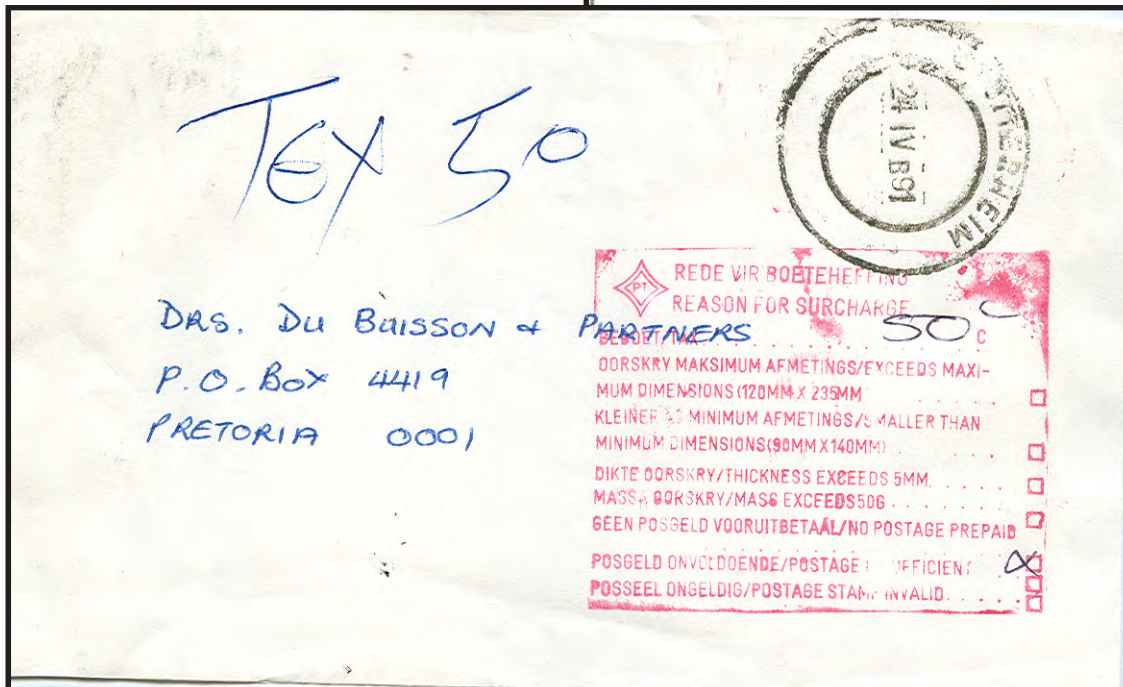 TEX 50
24 IV 1991
DRS. DU BUISSON & PARTNERS
P.O. BOX 4419
PRETORIA 0001
PT
REDE VIR BOETEHEFFING
REASON FOR SURCHARGE
BEBOET/TAX . . . . . . . . . . 50 C
OORSKRY MAKSIMUM AFMETINGS/EXCEEDS MAXI-
MUM DIMENSIONS (120MM X 235MM
KLEINER AS MINIMUM AFMETINGS/SMALLER THAN
MINIMUM DIMENSIONS (90MM X 140MM) . . . . . .
DIKTE OORSKRY/THICKNESS EXCEEDS 5MM. . . . . .
MASSA OORSKRY/MASS EXCEEDS 50G . . . . . . .
GEEN POSGELD VOORUITBETAAL/NO POSTAGE PREPAID
POSGELD ONVOLDOENDE/POSTAGE INSUFFICIENT X
POSSEEL ONGELDIG/POSTAGE STAMP INVALID . . . . .